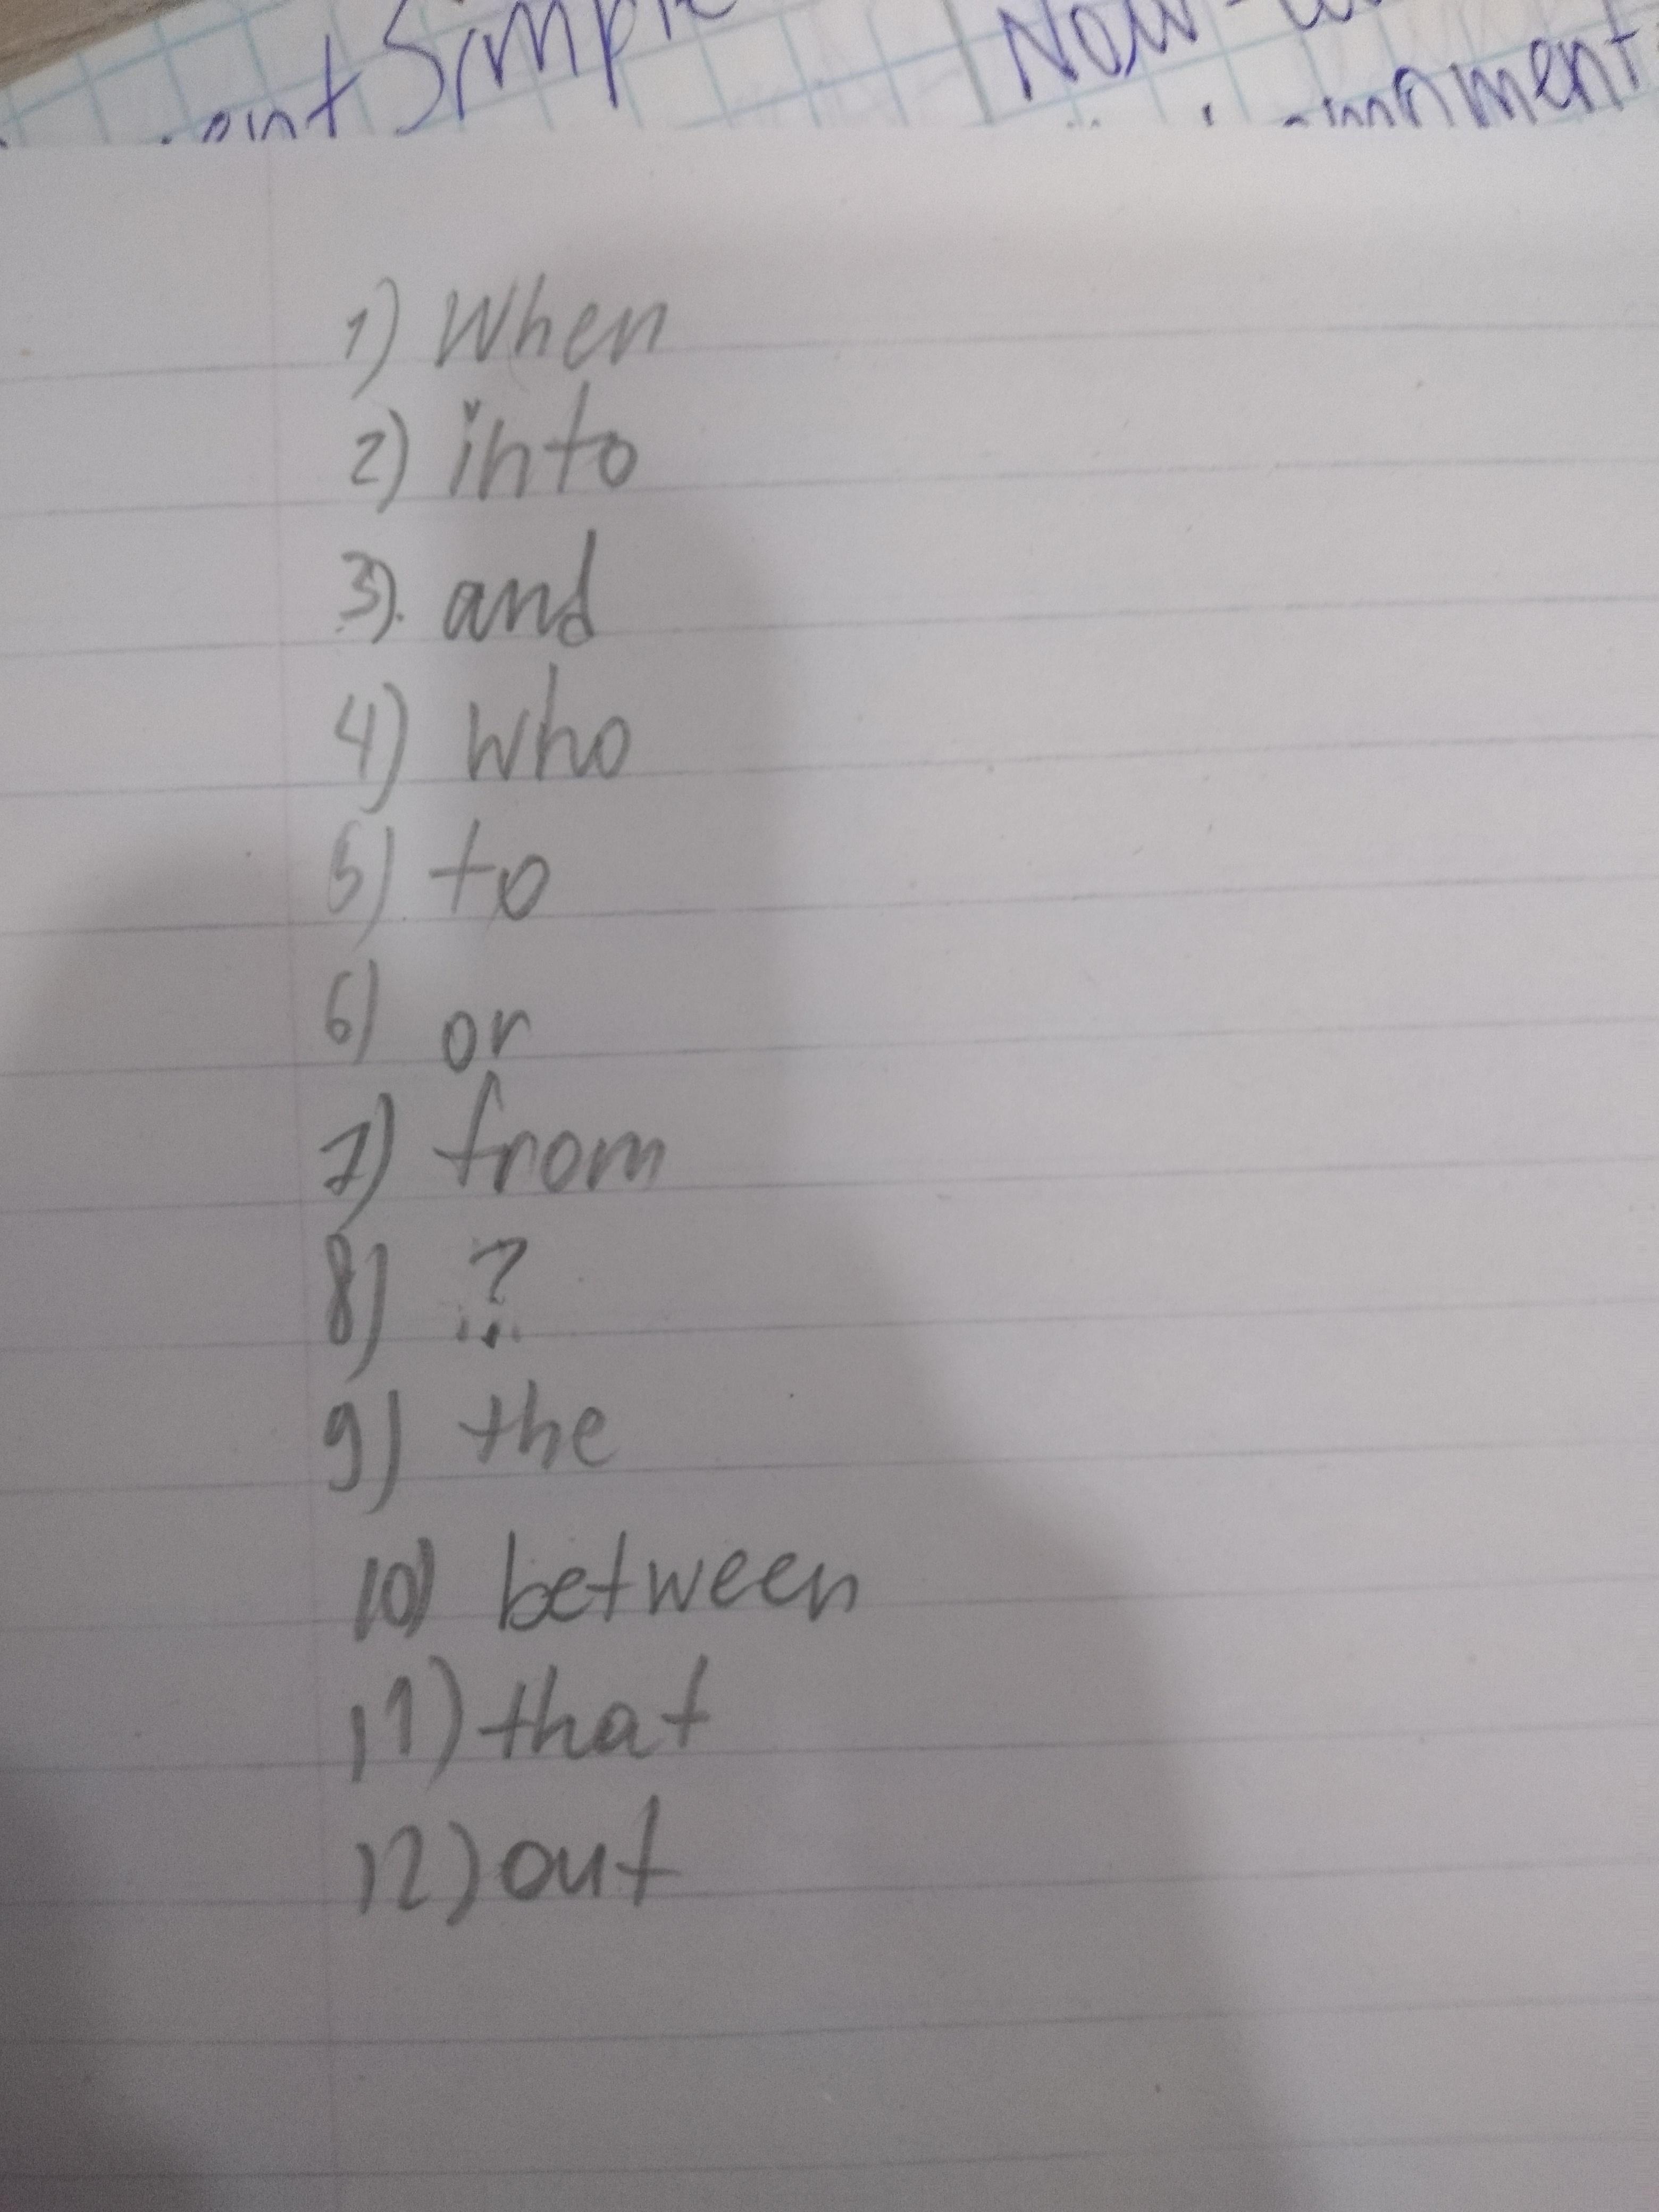 Simple Now
1) When
2) into
3) and
4) who
5) to
6) or
7) from
8) ?
9) the
10) between
11) that
12) out